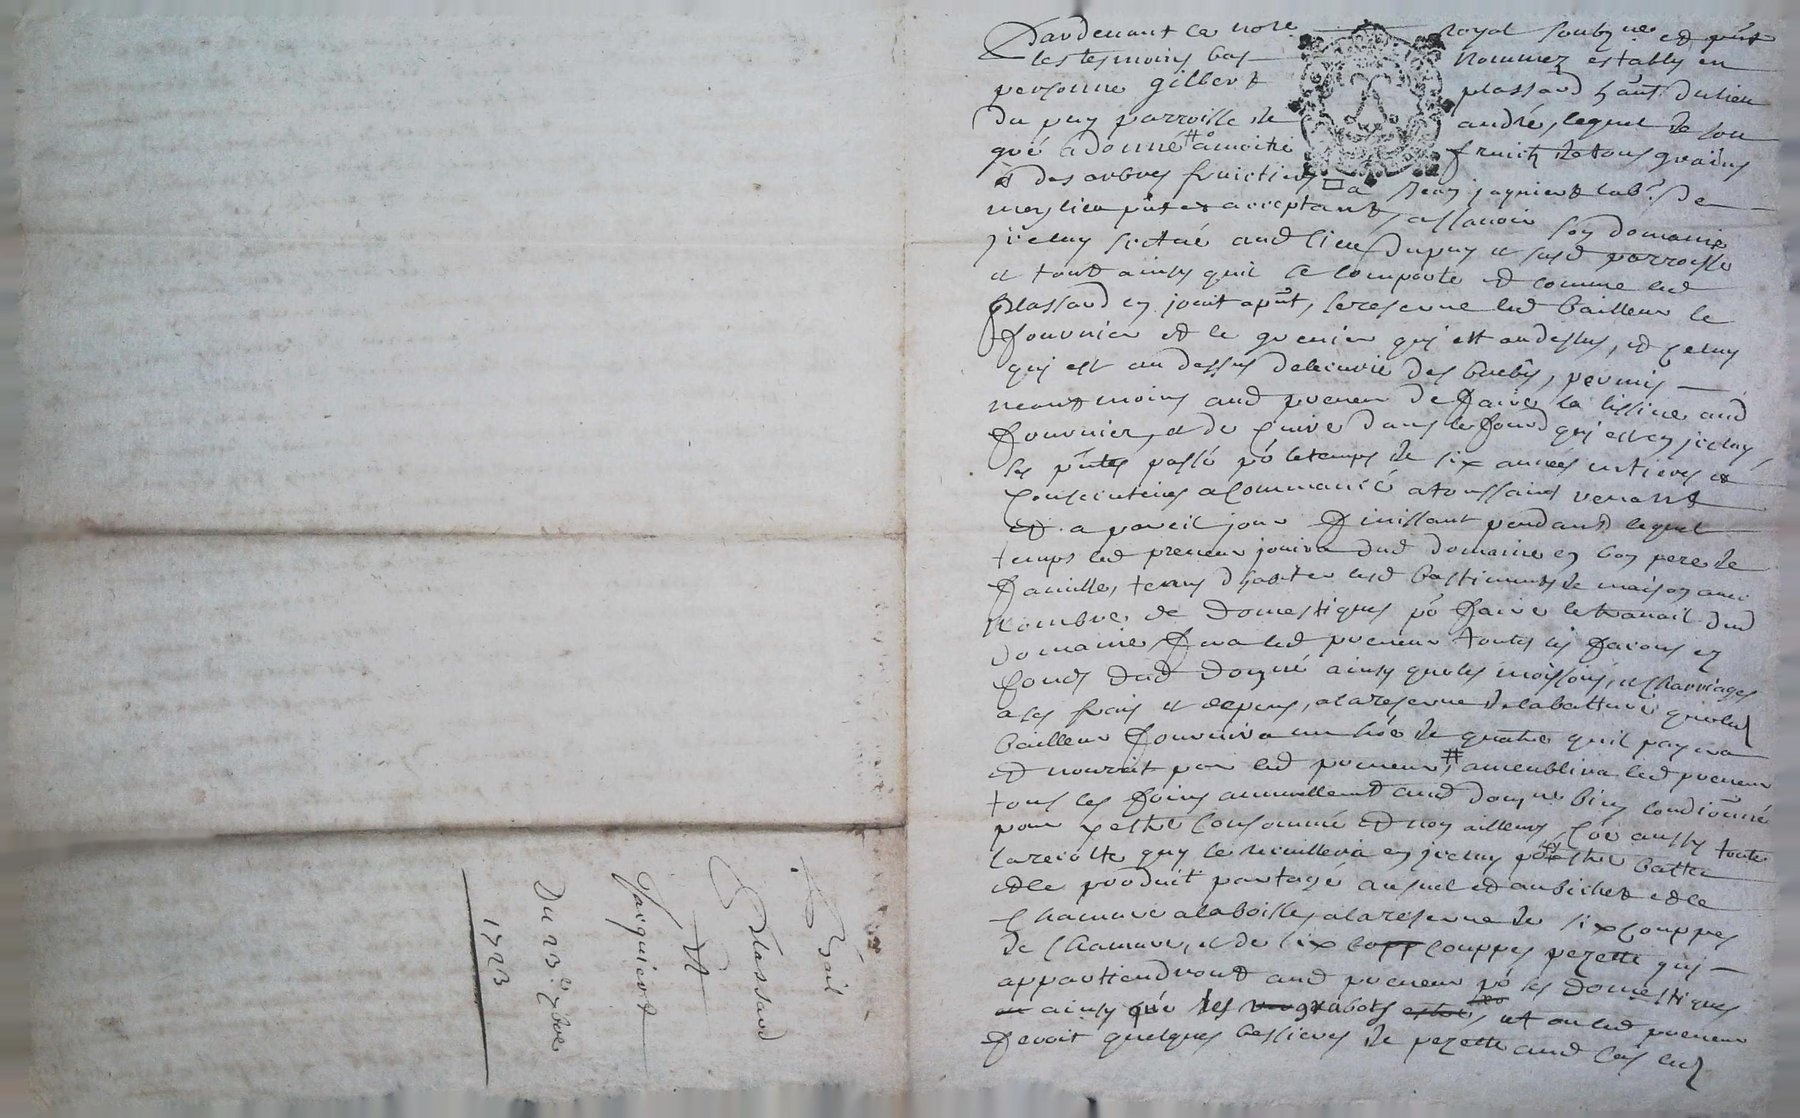 Pardevant le nore royal soubzne et pnt
les tesmoins bas nommez estably en
personne gilbert plassard hant du lieu
du puy parroisse de andré, lequel de son
gré a donné # a moitié fruictz de tous grains
et des arbres fruictiers □ a Jean jaquiert lab. de
mesme lieu pnt et acceptant, assavoir son domaine
jceluy scitué aud lieu du puy et susd parroisse
et tout ainsy quil se comporte et comme led
plassard en jouit apnt, se reserve led bailleur le
fournier et le grenier qui est audessus, et celuy
qui est au dessus de lecurie des brebis, permis
neantmoins aud preneur de faire la lissive aud
fournier, et de cuire dans le fourd qui est en jceluy,
les pntes passé po le temps de six années entieres et
consecutives a commancé a toussaint venant
et a pareil jour finissant pendant lequel
temps led preneur jouira dud domaine en bon pere de
famille, tenu d'habiter lesd bastiments de maison avec
nombre de domestiques po faire le travail dud
domaine, fera led preneur toutes les facons en
fonds dud domne ainsy que les moissons, et charriages
a ses frais et depens, a la reserve de la batture que led
bailleur fournira un hoe de quatre quil payera
et nourrit par led preneur, # ameublira led preneur
tous les foins annuellement aud domne bien condionné
pour y estre consommé et non ailleurs, coe aussy toute
la recolte quy se recueillera en jceluy po y estre battu
et le produit partage au suel et au bichet et le
chanvre a la boisse, a la reserve de six couppes
de chanvre, et de six copp couppes pezette qui
appartiendront aud preneur po les domestiques
ainsy que les grabots, et ou led preneur
feroit quelques bessieres de pezette aud cas led
Bail
Plassard
A
Jacquiert
Du 23e xbre
1723